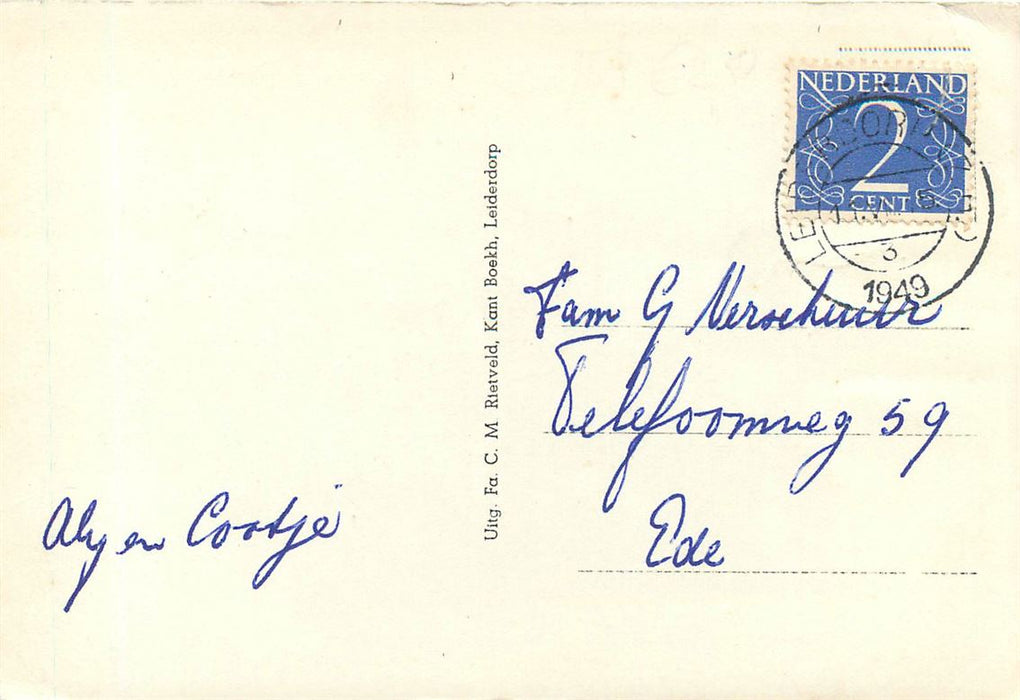 NEDERLAND
2
CENT
3
1949
Uitg. Fa. C. M. Rietveld, Kant Boekh, Leiderdorp
Fam G Verschuur
Telefoonweg 59
Ede
Aly en Cootje